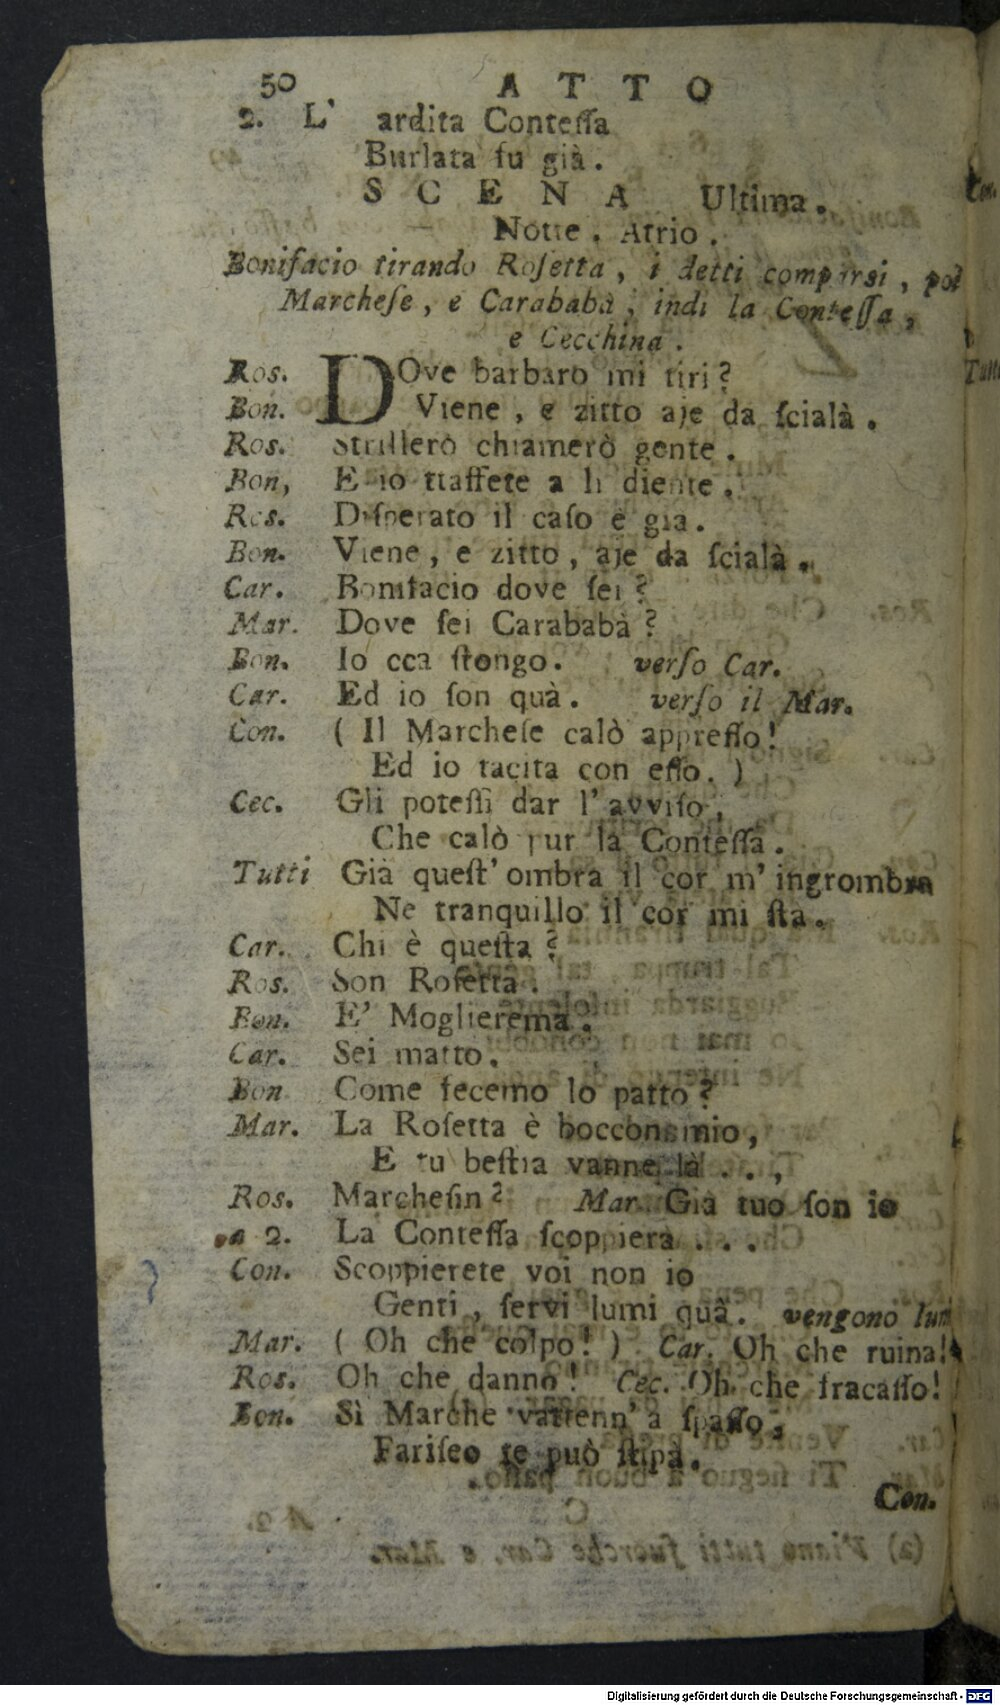 50 A T T O
2. L' ardita Conteſſa
Burlata fu già.
S C E N A Ultima.
Notte. Atrio.
Bonifacio tirando Roſetta, i detti comparsi, poi
Marcheſe, e Carababà, indi la Conteſſa,
e Cecchina.
Ros. DOve barbaro mi tiri?
Bon. Viene, e zitto aje da ſcialà.
Ros. Strillerò chiamerò gente.
Bon, E io ttaffete a li diente.
Ros. Diſperato il caſo è gia.
Bon. Viene, e zitto, aje da ſcialà.
Car. Bonifacio dove ſei?
Mar. Dove ſei Carababà?
Bon. Io cca ſtongo. verſo Car.
Car. Ed io ſon quà. verſo il Mar.
Con. ( Il Marcheſe calò appreſſo!
Ed io tacita con eſſo. )
Cec. Gli poteſſi dar l'avviſo,
Che calò pur la Conteſſa.
Tutti Già queſt' ombra il cor m' ingrombra
Ne tranquillo il cor mi ſta.
Car. Chi è queſta?
Ros. Son Roſetta.
Bon. E' Moglierema.
Car. Sei matto.
Bon Come fecemo lo patto?
Mar. La Roſetta è boccon mio,
E tu beſtia vanne là . . ,
Ros. Marcheſin? Mar. Già tuo ſon io
a 2. La Conteſſa ſcoppierà . . .
Con. Scoppierete voi non io
Genti, ſervi lumi quà. vengono lumi
Mar. ( Oh che colpo! ) Car. Oh che ruina!
Ros. Oh che danno! Cec. Oh che fracaſſo!
Bon. Sì Marche vattenn' a ſpaſſo,
Fariſeo te può ſtipà.
Con.
Digitalisierung gefördert durch die Deutsche Forschungsgemeinschaft - DFG